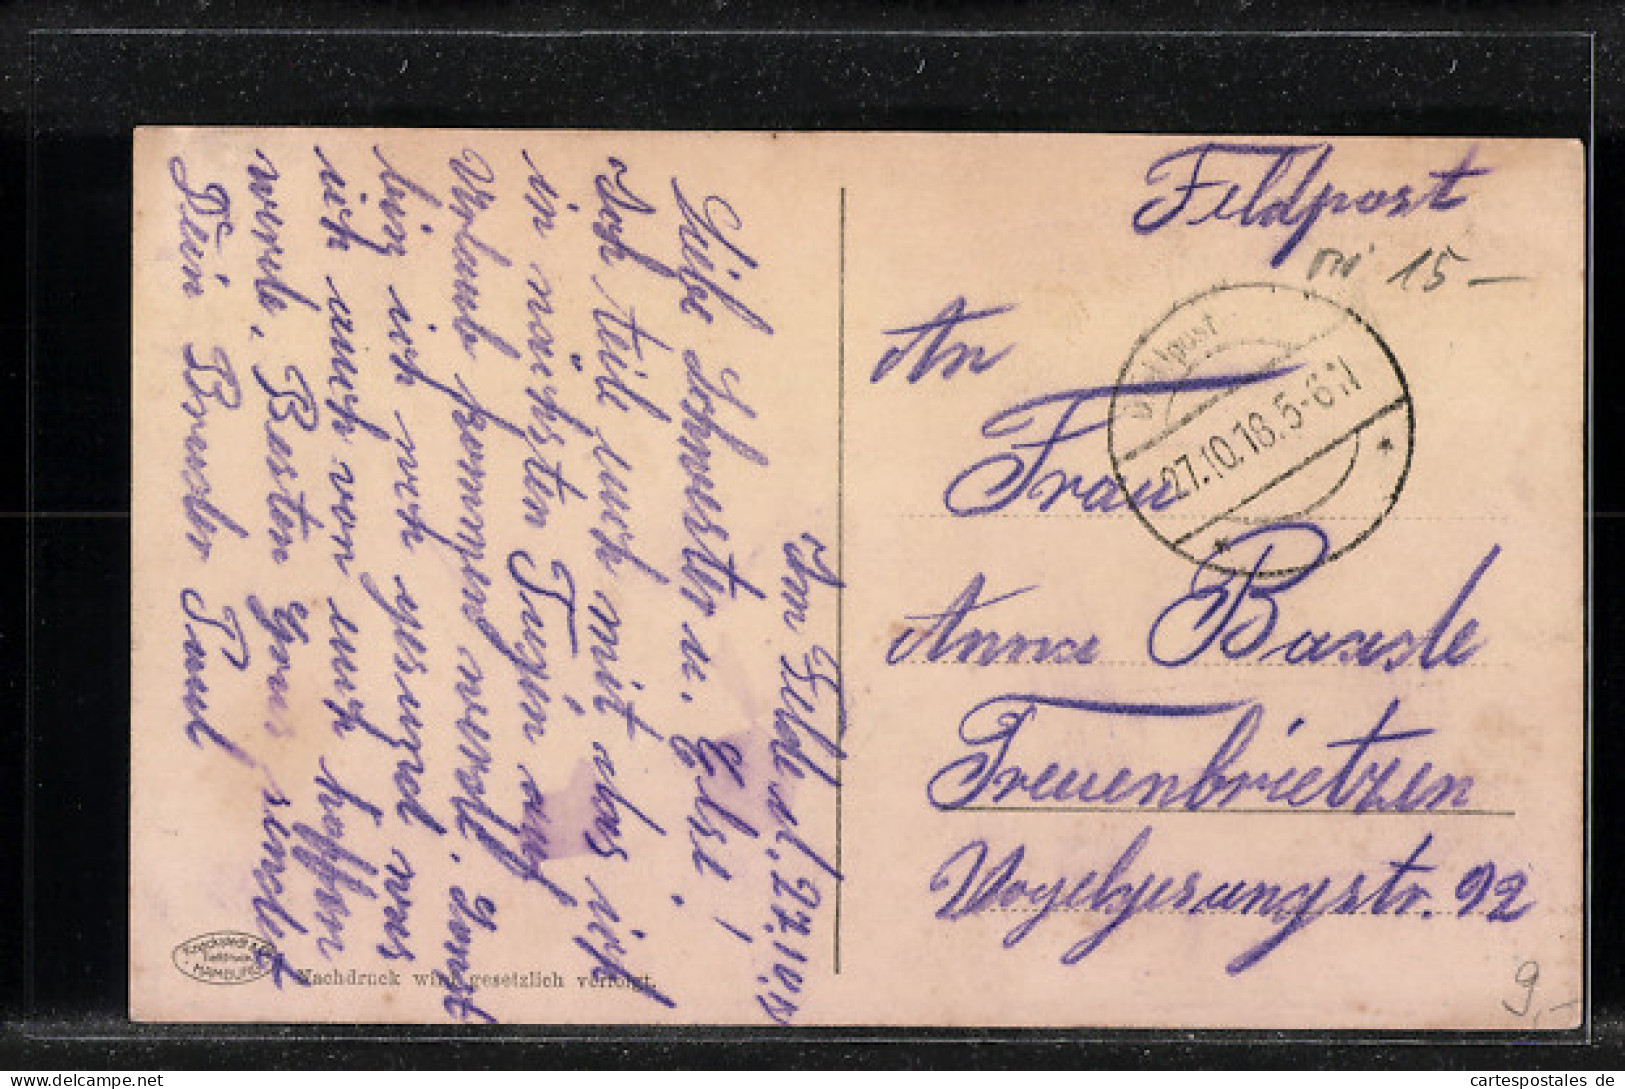 Feldpost
15 –
Feldpost
27.10.18. 5-6 N
An
Frau
Anna Baasle
Treuenbrietzen
Vogelgesangstr. 92
Im Felde d. 27.10.18
Liebe Schwester u. Else!
Ich teile euch mit das ich
in nächsten Tagen auf
Urlaub kommen werde. Sonst
bin ich noch gesund was
ich auch von euch hoffen
werde. Besten Grus sendet
Dein Bruder Paul
Knackstedt & Co.
HAMBURG
Nachdruck wird gesetzlich verfolgt.
9,–
cartespostales de